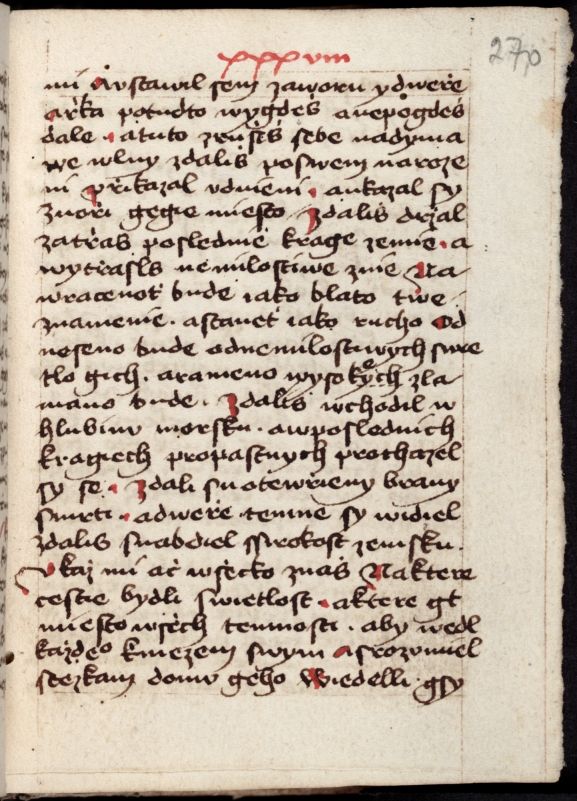 xxxviii
270
mi Avstawil sem zaworu ydweře
Ařka potudto wygdeš anepogdeš
dale · atuto zrušiš sebe nadyma
we wlny Zdališ poswem naroze
ni přikazal vdnieni · aukazal sy
zuoři gegie miesto Zdališ držal
zatřas poslednie krage zemie · a
wytřasls nemilostiwe znie Na
wracenot bude iako blato twe
znamenie · astanet iako rucho Od
neseno bude odnemilostiwych swie
tlo gich · arameno wysokych zla
mano bude · Zdališ wchodil w
hlubinu morsku · awposlednich
kragiech propastnych prochazel
sy se · Zdali su otewrieny brany
smrti · adweře temne sy widiel
zdališ snabdiel ssirokost zemsku ·
Vkaž mi ač wšecko znaš Naktere
cestie bydli swietlost · aktere gt
miesto wšech temnosti · aby wedl
každeo kmezem swym Asrozumiel
stezkam domu geho Wiedelli · gsy